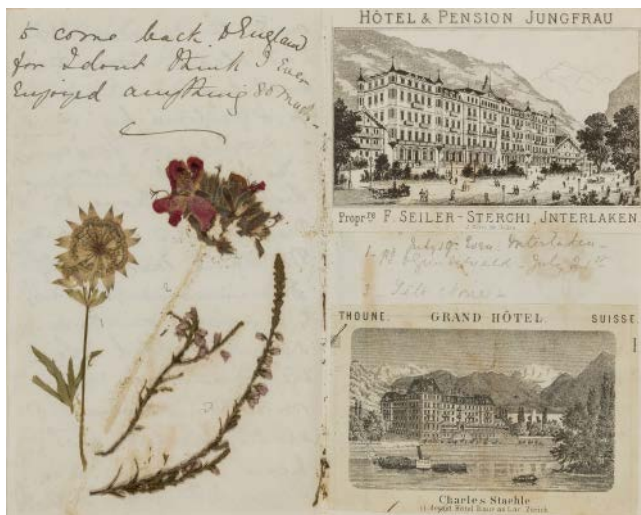 to come back to England
for I dont think I ever
enjoyed anything so much
HÔTEL & PENSION JUNGFRAU
Propr.re F. SEILER-STERCHI, INTERLAKEN.
1. July 19. Interlaken
2. Grindelwald - July 21st
3
THOUNE. GRAND HÔTEL. SUISSE.
Charles Staehle
Zurich.
1
2
3